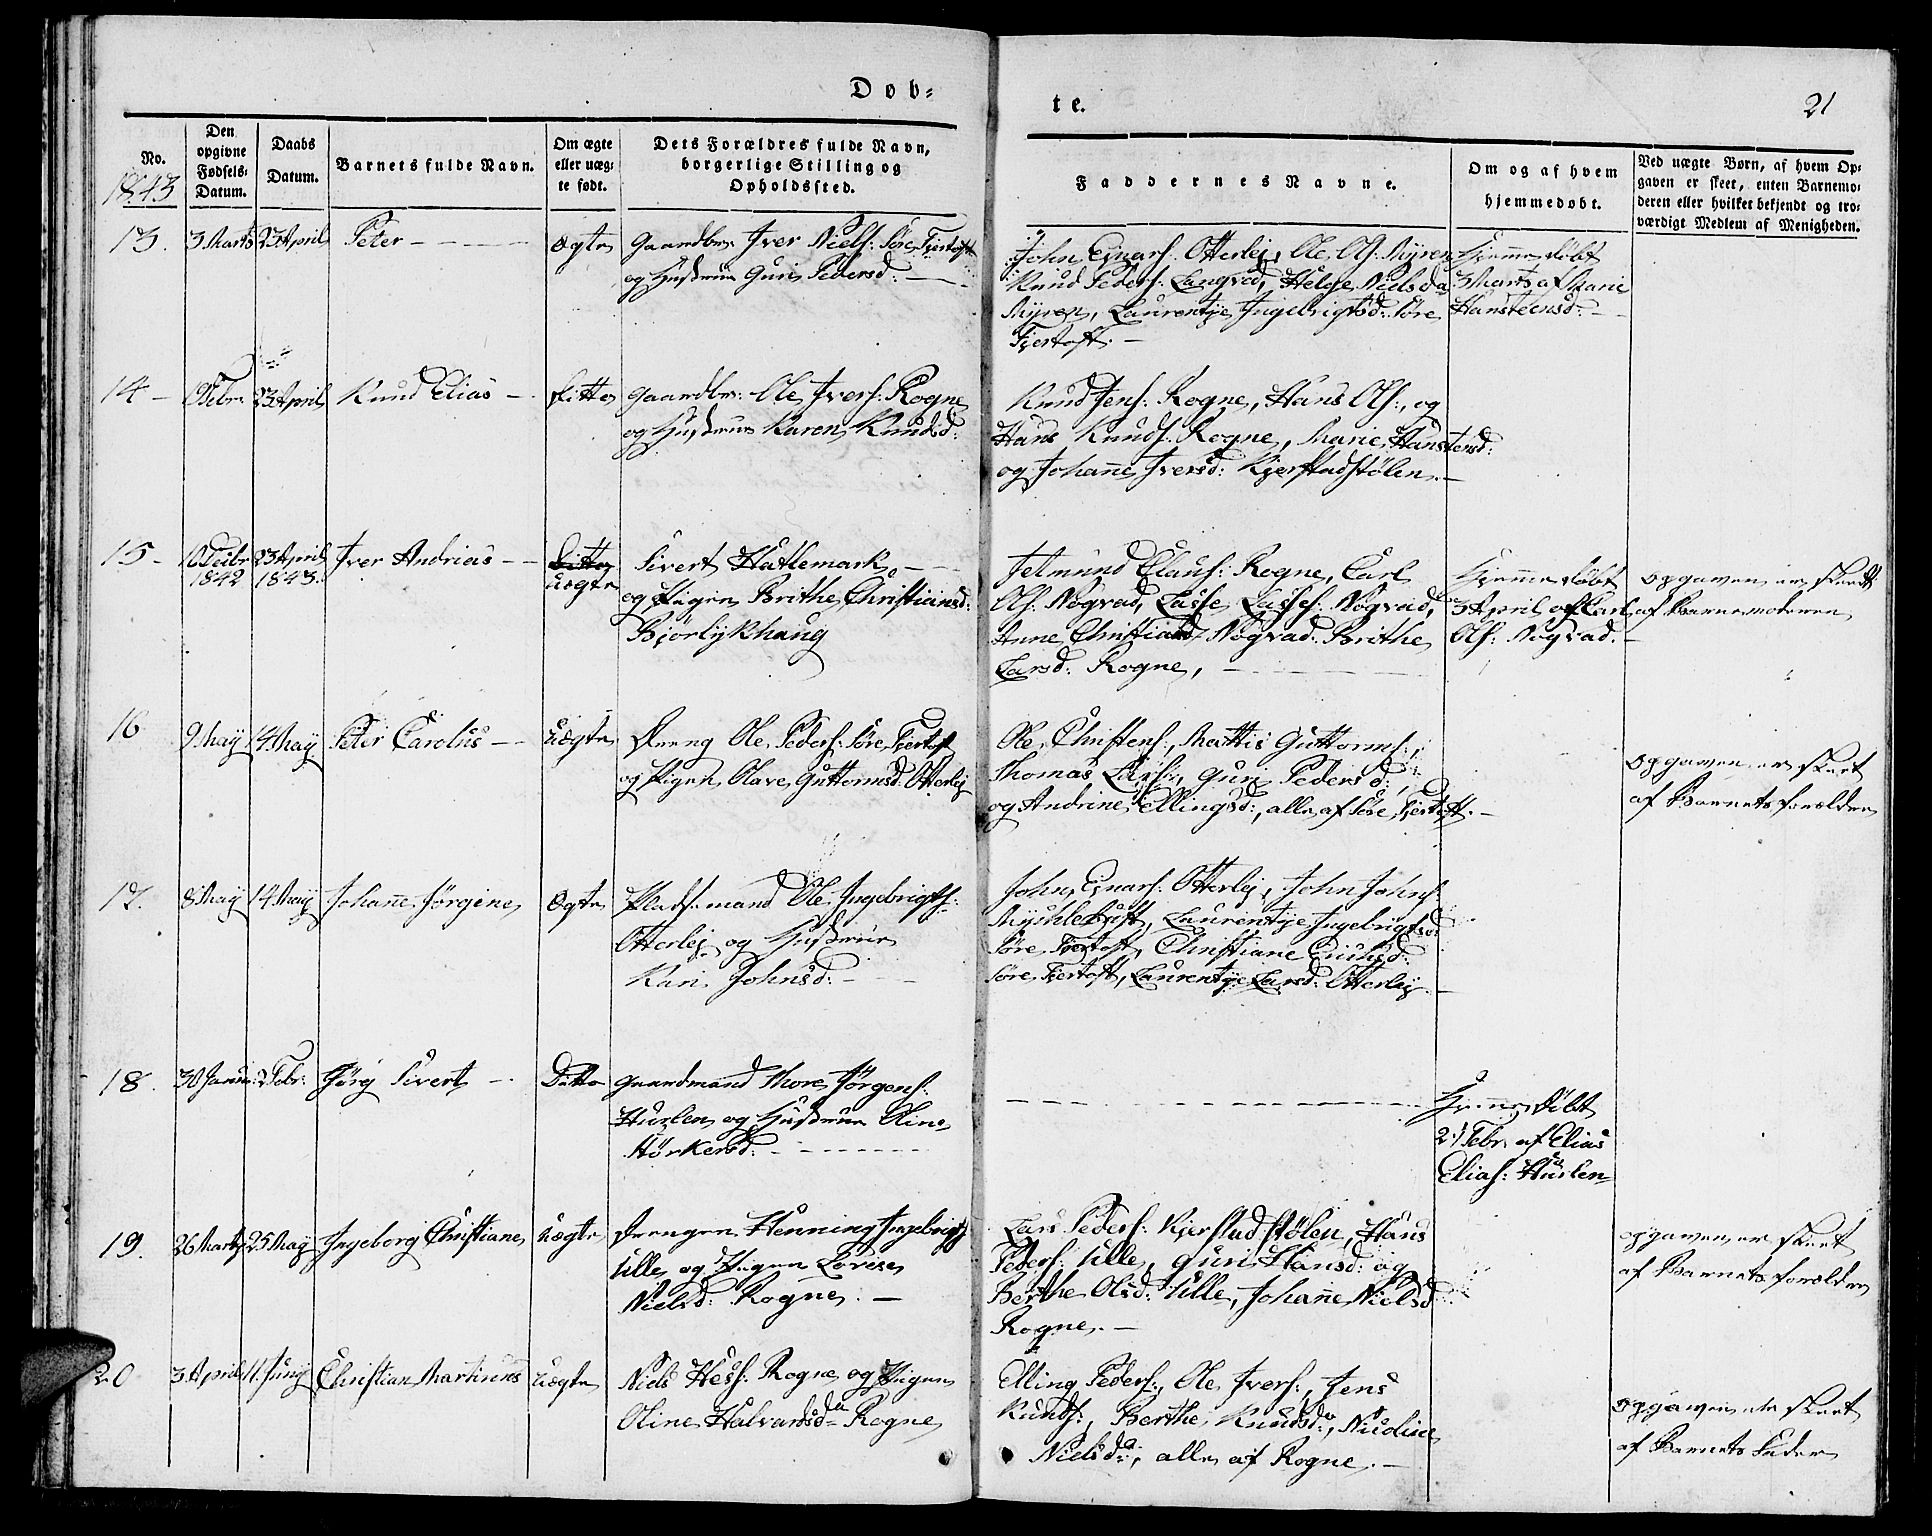 Døb-
te.
21
No.
1843
Den opgivne Fødsels-Datum.
Daabs Datum.
Barnets fulde Navn.
Om ægte eller uæg-te født.
Dets Forældres fulde Navn, borgerlige Stilling og Opholdssted.
Faddernes Navne.
Om og af hvem hjemmedøbt.
Ved uægte Børn, af hvem Op-gaven er skeet, enten Barnemo-deren eller hvilket bekjendt og tro-værdigt Medlem af Menigheden.
13. 3 Marts 23 April Peter - Ægte
Gaardbr. Iver Niels: Søre Fjertoft
og Hustrue Guri Pedersd:
John Ejnars: Otterlej, Ole Ols: Myren
Knud Peders: Langvad, Helge Nielsda
Myren, Laurentje Ingebrigtsd: Søre
Fjertoft.
Hjemmedøbt
3 Marts af Marie
Hansteensd:
14 - 23 April Knud Elias - ditto
Gaardbr: Ole Ivers: Rogne
og Hustrue Karen Knudsd:
Knud Jens: Rogne, Hans Ols:, og
Hans Knuds: Rogne, Marie Hanstensd:
og Johanne Iversd: Kjerstadstølen.
15 - 23 April Iver Andrias -
1842 1843.
ditto
uægte
Sivert Hatlemark
og Pigen Brithe Christiansd:
Bjørlykhaug
Jetmund Claus: Rogne, Carl
Ols: Nogvad, Lasse Lasses: Nogvad,
Anne Christiansd, Nogvad. Brithe
Larsd: Rogne,
Hjemmedøbt
3 April af Carl
Ols: Nogvad.
Opgaven er skeedt
af Barnemoderen
16 9 May 14 May Peter Carolus - Uægte
Dreng Ole Peders: Søre Fjertoft
og Pigen Olave Guttormsd: Otterlej
Ole Christens:, Mattis Guttorms:,
Thomas Lars:, Guri Pedersd:,
og Andrine Ellingsd:, alle af Søre Fjertoft.
Opgaven er skeet
af Barnets forældre
17. 8 May 14 May Johanne Jørgine Ægte
Pladsmand Ole Ingebrigts:
Otterlej og Hustrue
Kari Johnsd:
John Ejnars: Otterlej, John Johns:
Myuhlebust, Laurentje Ingebrigtsd:
Søre Fjertoft, Christiane
Søre Fjertoft, Laurentje Larsd: Otterlej.
18. 30 Januar Febr: Jørg Sivert - Ditto
Gaardmand Thore Jørgens:
Hurlen og Hustrue Oline
Størkersd:
Hjemmedøbt
2 Febr. af Elias
Elias: Hurlen
19. 26 Marts 25 May Ingeborg Christiane Uægte
Drengen Henning Ingebrigts:
Ulle og Pigen Lovise
Nielsd: Rogne.
Lars Peders: Kjerstadstølen, Hans
Peders: Ulle, Guri Hansd: og
Berthe Olsd: Ulle, Johanne Nielsd
Rogne.
Opgaven er skeet
af Barnets forældre
20 3 April 11 Juny Christian Martinus Uægte
Niels Hess: Rogne og Pigen
Oline Halvardsda Rogne
Elling Peders:, Ole Ivers:, Jens
Knuds:, Berthe Knudsda, Nicoline
Nielsda, alle af Rogne.
Opgaven er skeet
af Barnets Fader